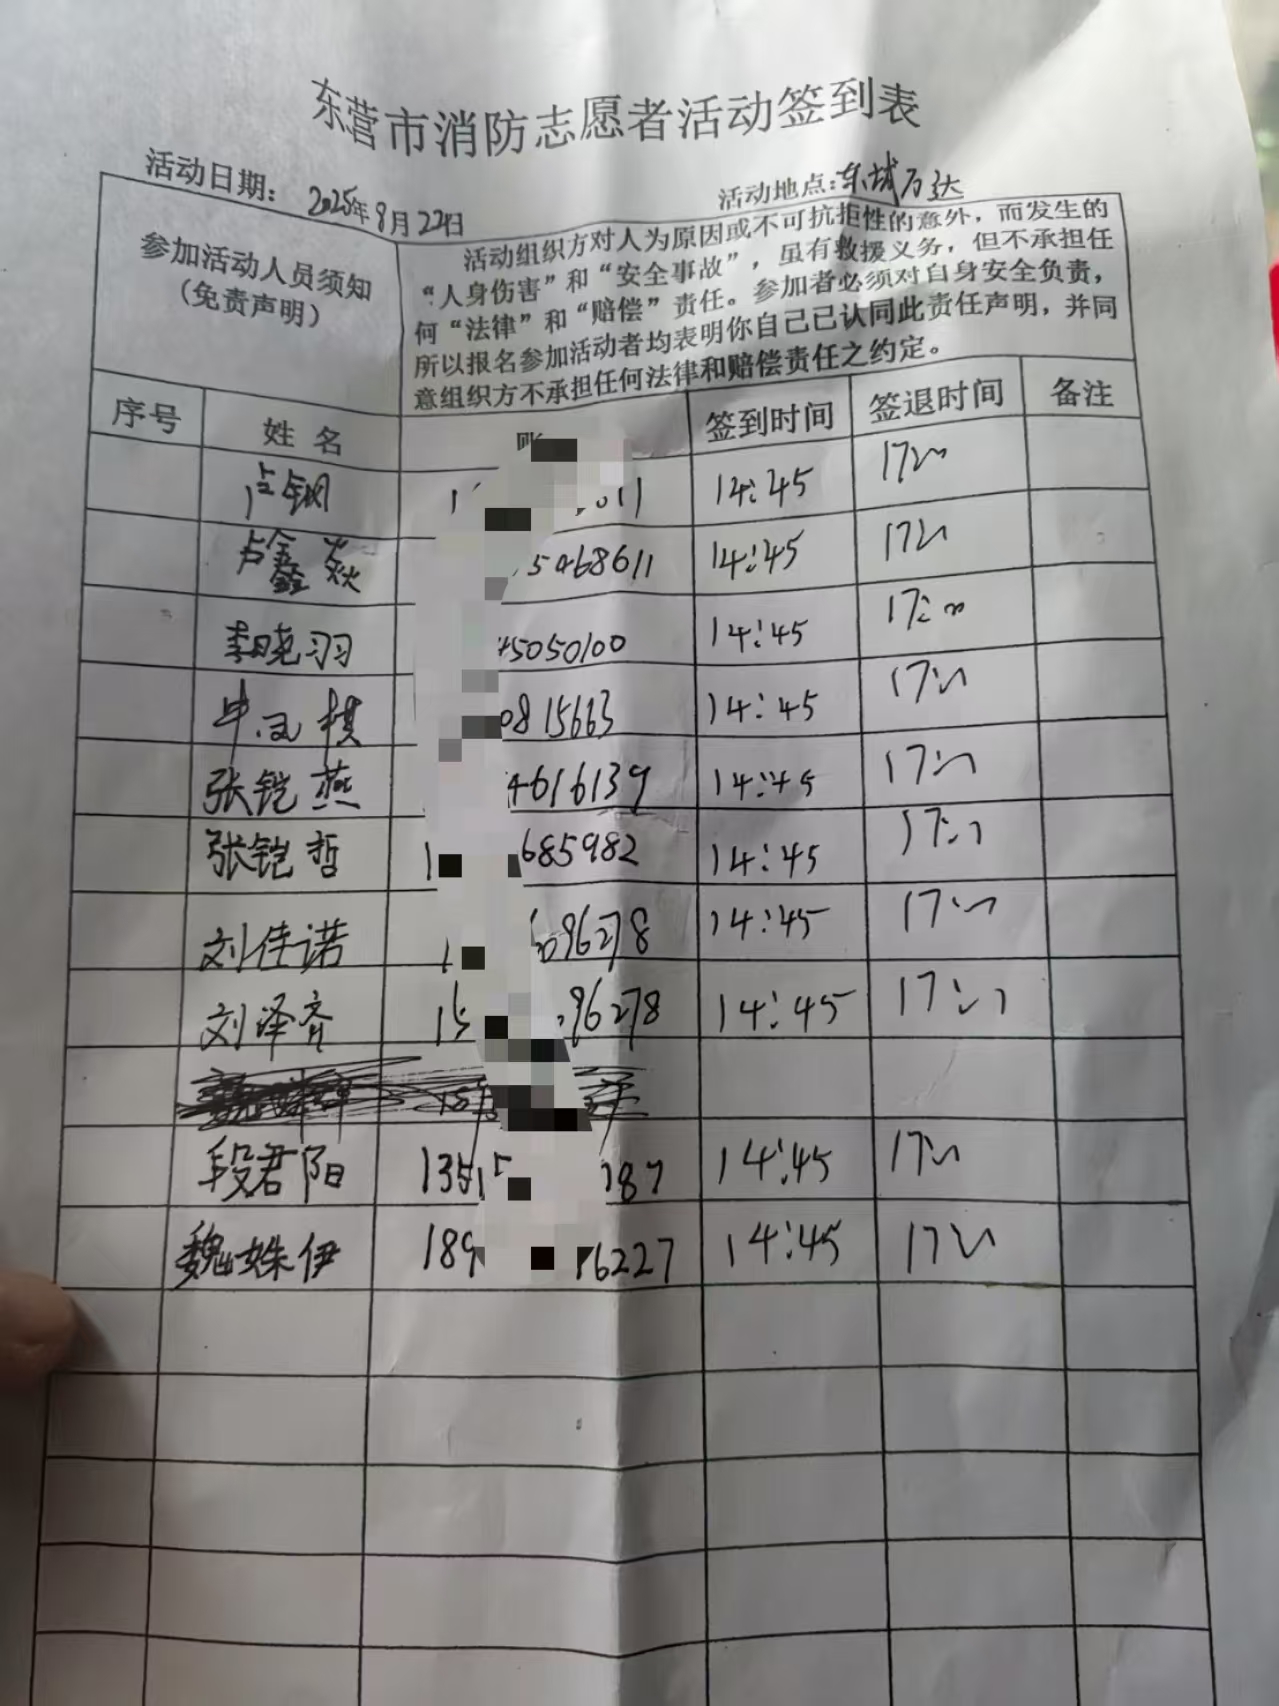 东营市消防志愿者活动签到表
活动日期: 2025年8月22日 活动地点:东城万达
参加活动人员须知
(免责声明)
活动组织方对人为原因或不可抗拒性的意外，而发生的
“人身伤害”和“安全事故”，虽有救援义务，但不承担任
何“法律”和“赔偿”责任。参加者必须对自身安全负责，
所以报名参加活动者均表明你自己已认同此责任声明，并同
意组织方不承担任何法律和赔偿责任之约定。
序号 姓名 账 签到时间 签退时间 备注
占钢 1 611 14:45 17
占鑫焱 5468611 14:45 17
李晓羽 45050100 14:45 17:00
棋 0815663 14:45 17
张铠燕 4616139 14:45 17
张铠哲 1 685982 14:45 17
刘佳诺 1 096278 14:45 17
刘泽齐 15 96278 14:45 17
段君阳 1351 187 14:45 17
魏姝伊 189 16227 14:45 17